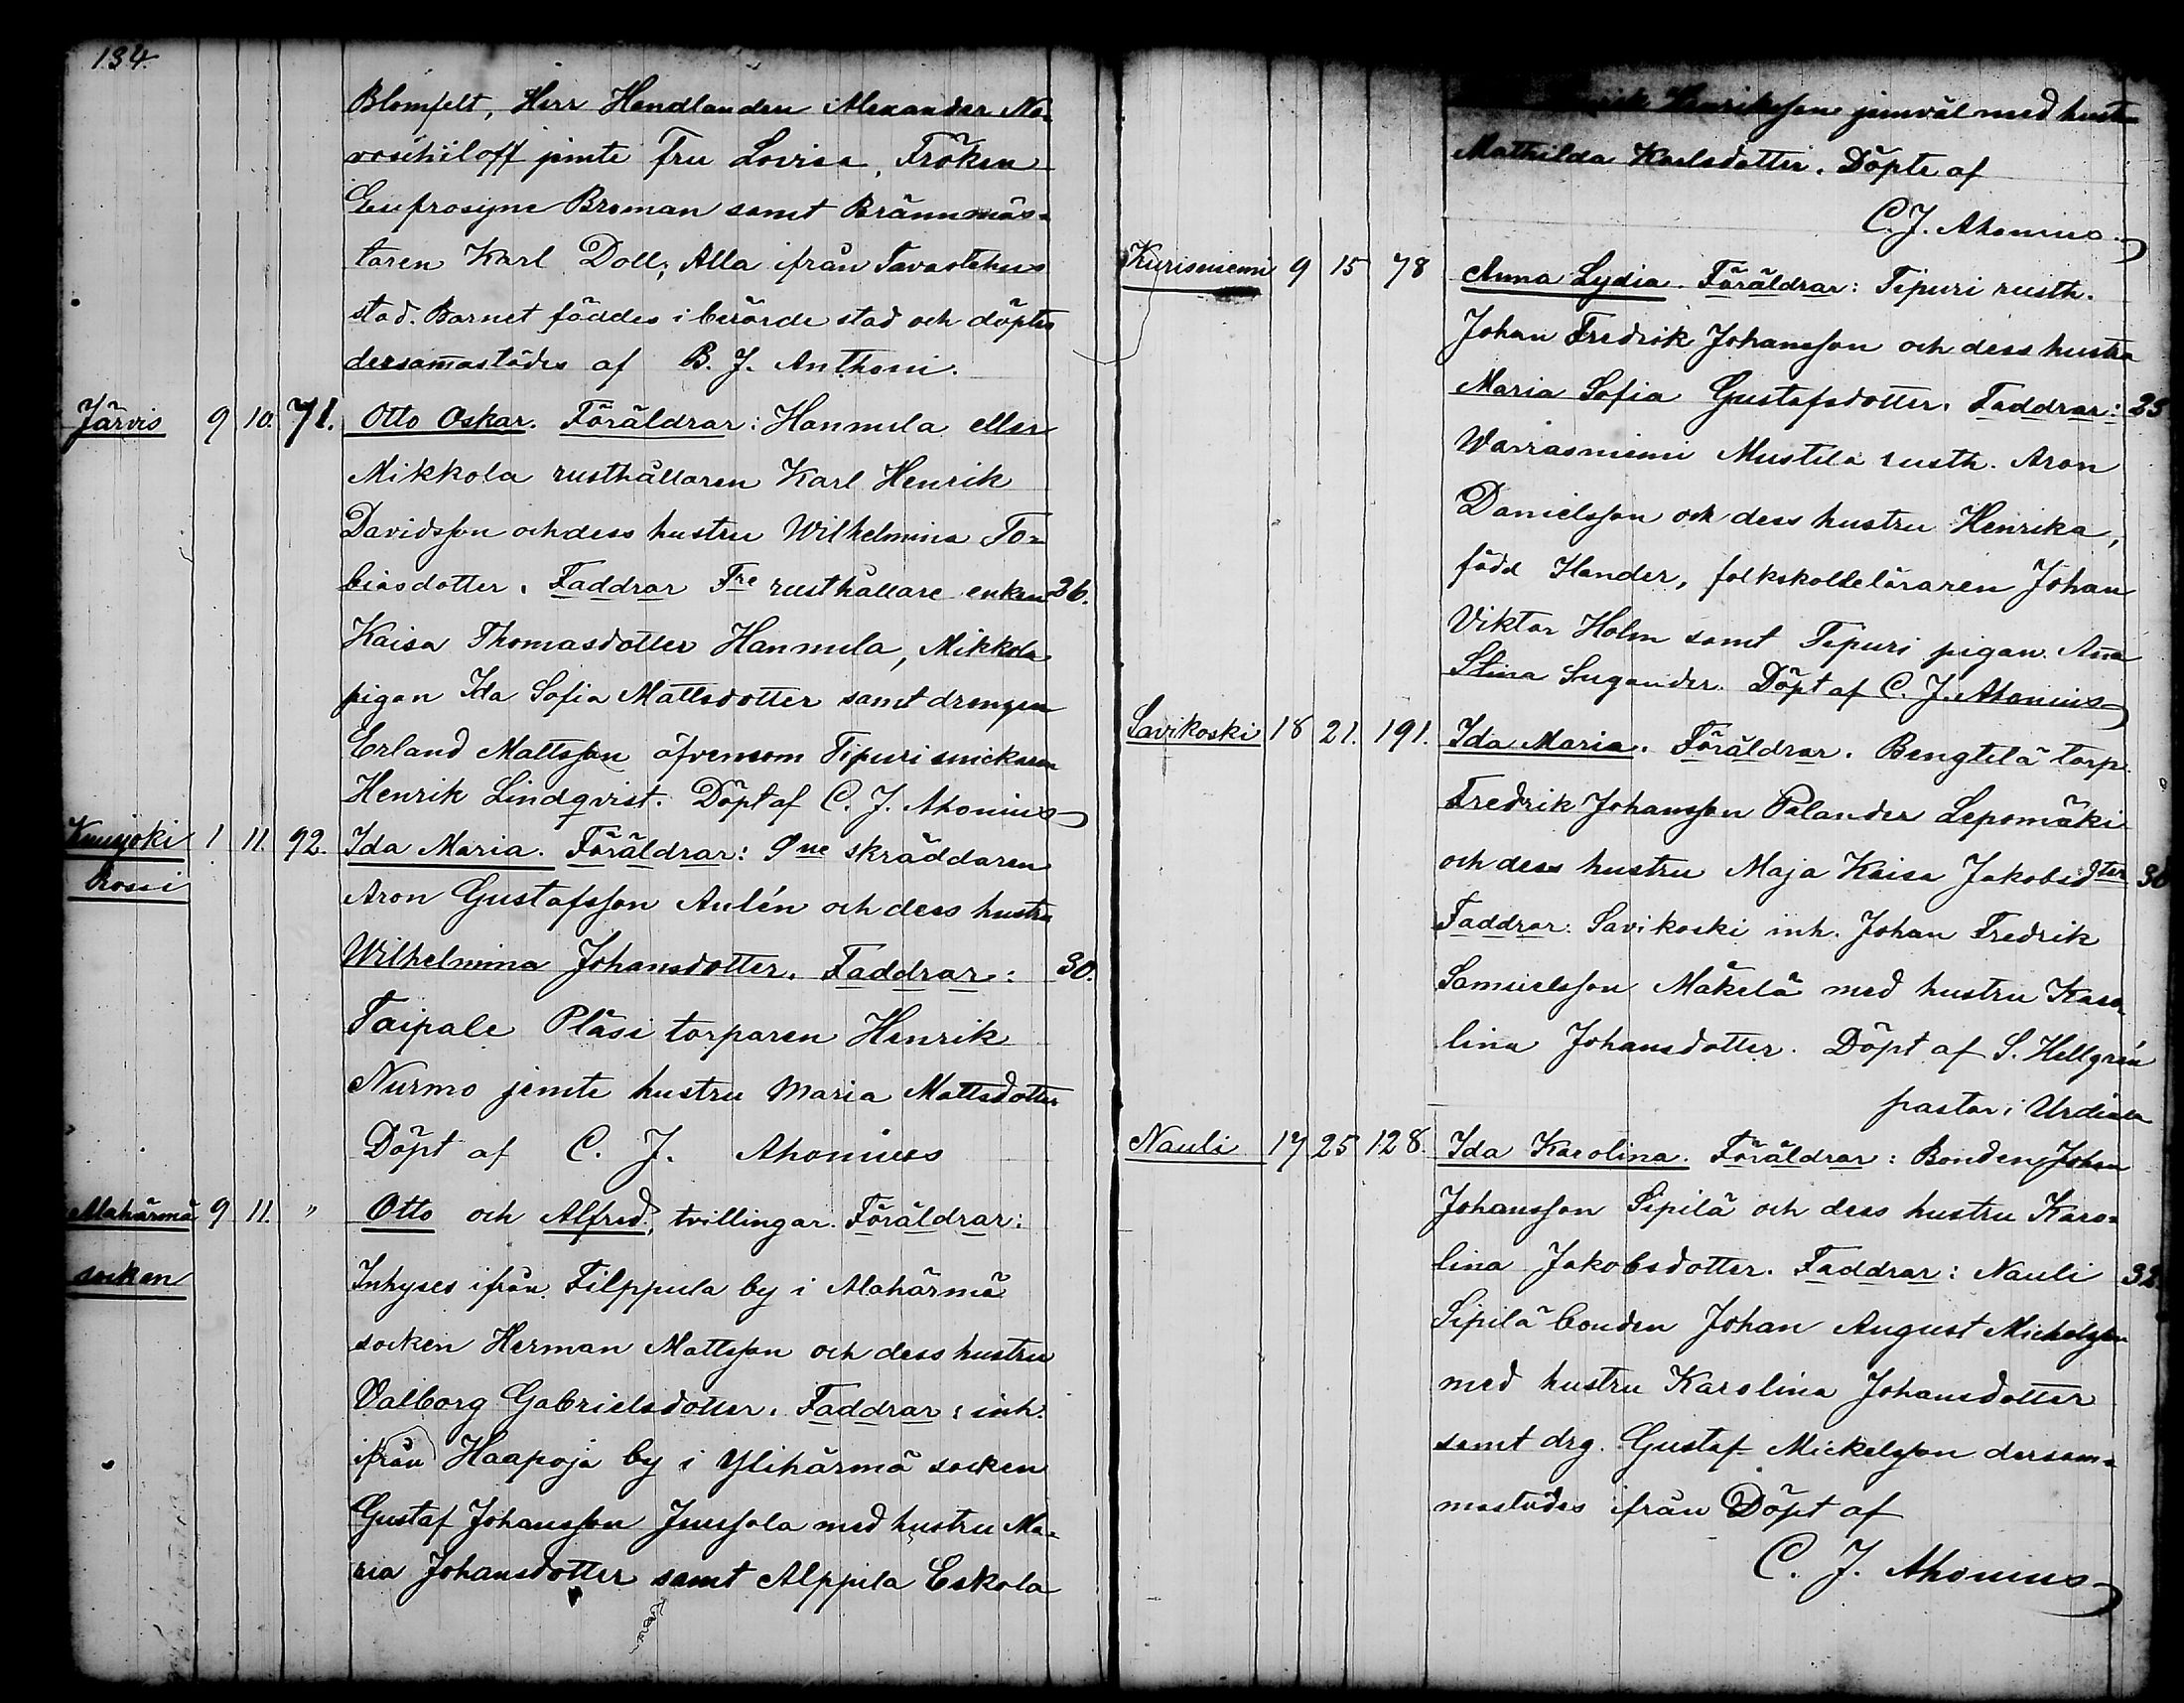 134.
Blomfelt, Herr Handlanden Alexander No-
voschiloff jemte Fru Lovisa, Fröken
Eufrosyne Broman samt Brännmäs-
taren Karl Doll; Alla ifrån Tavastehus
stad. Barnet föddes i berörde stad och döptes
dersammastädes af B. J. Anthoni.
Järvis 9 10. 71. Otto Oskar. Föräldrar: Hannula eller
Mikkola rusthållaren Karl Henrik
Davidsson och dess hustru Wilhelmina To-
biasdotter. Faddrar Fre rusthållare enkan 36.
Kaisa Thomasdotter Hannula, Mikkola
pigan Ida Sofia Mattsdotter samt drengen
Erland Mattsson äfvensom Tipuri snickaren
Henrik Lindqvist. Döpt af C. J. Ahonius
Kuusjoki 1 11. 92. Ida Maria. Föräldrar: skräddaren
Rossi Aron Gustafsson Aulén och dess hustru
Wilhelmina Johansdotter. Faddrar: 30.
Taipale Pläsi torparen Henrik
Nurmo jemte hustru Maria Mattsdotter
Döpt af C. J. Ahonius
Alahärmä 9 11. " Otto och Alfred, tvillingar. Föräldrar:
socken Inhyses ifrån Filppula by i Alahärmä
socken Herman Mattsson och dess hustru
Valborg Gabrielsdotter. Faddrar: inh.
ifrån Haapoja by i Ylihärmä socken
Gustaf Johansson Juusola med hustru Ma-
ria Johansdotter samt Alppila Eskola
Henriksson jemväl med hustru
Mathilda Karlsdotter. Döpte af
C. J. Ahonius
Kurisniemi 9 15 78 Anna Lydia. Föräldrar: Tipuri rusth.
Johan Fredrik Johansson och dess hustru
Maria Sofia Gustafsdotter. Faddrar: 25
Warrasniemi Mustila rusth. Aron
Danielsson och dess hustru Henrika,
född Hander, folkskolleläraren Johan
Viktor Holm samt Tipuri pigan Anna
Stina Sugander. Döpt af C. J. Ahonius
Savikoski 18 21. 191. Ida Maria. Föräldrar. Bengtilä torp.
Fredrik Johansson Palander Lepomäki
och dess hustru Maja Kaisa Jakobsdter 30
Faddrar: Savikoski inh. Johan Fredrik
Samuelsson Mäkelä med hustru Karo-
lina Johansdotter. Döpt af S. Hellgrén
pastor i Urdiala
Nauli 17 25 128. Ida Karolina. Föräldrar: Bonden Johan
Johansson Sipilä och dess hustru Karo-
lina Jakobsdotter. Faddrar: Nauli 32.
Sipilä bonden Johan August Michelsson
med hustru Karolina Johansdotter
samt drg. Gustaf Mickelsson dersam-
mastädes ifrån Döpt af
C. J. Ahonius